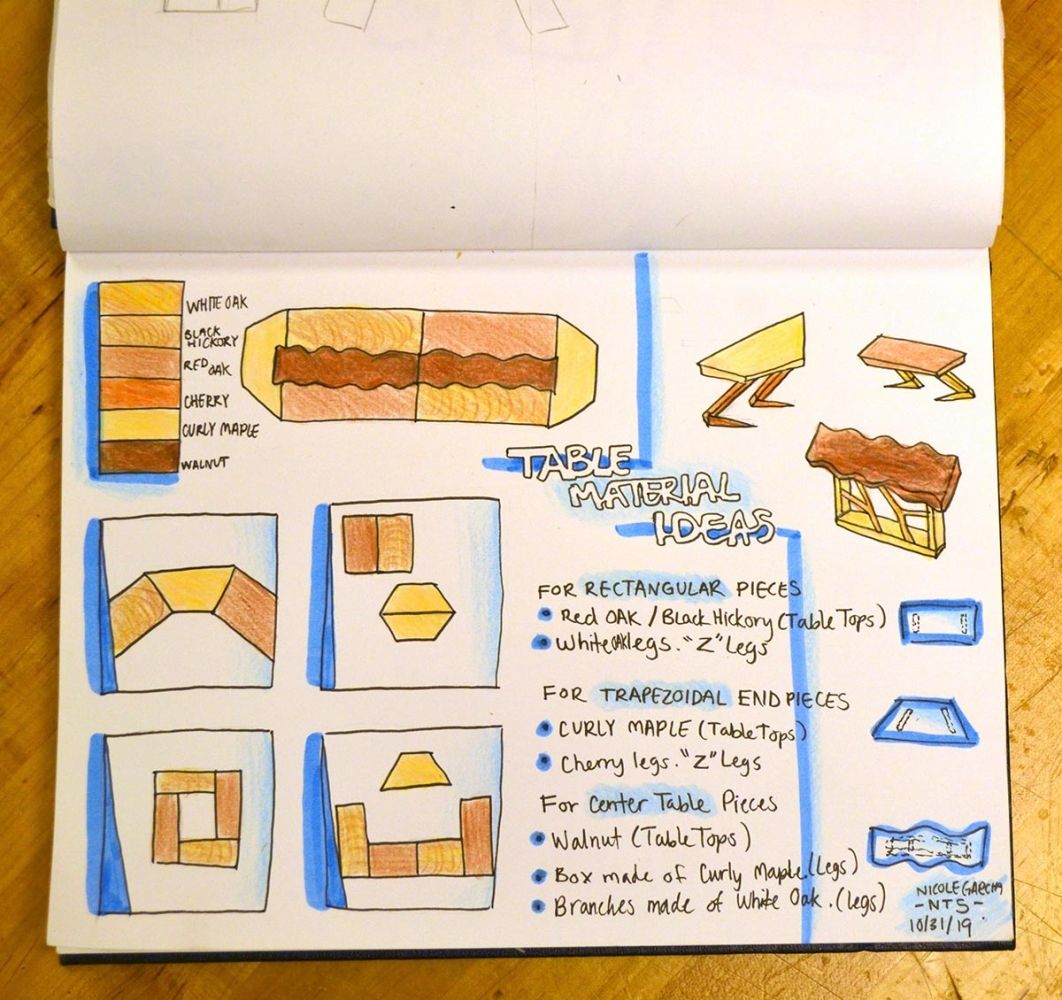 WHITE OAK
BLACK
HICKORY
RED OAK
CHERRY
CURLY MAPLE
WALNUT
TABLE
MATERIAL
IDEAS
FOR RECTANGULAR PIECES
Red OAK / Black Hickory (Table Tops)
White OAK legs. "Z" Legs
FOR TRAPEZOIDAL END PIECES
CURLY MAPLE (Table Tops)
Cherry legs. "Z" Legs
For Center Table Pieces
Walnut (Table Tops)
Box made of Curly Maple. (Legs)
Branches made of White Oak. (legs)
NICOLE GARCIA
-NTS-
10/31/19